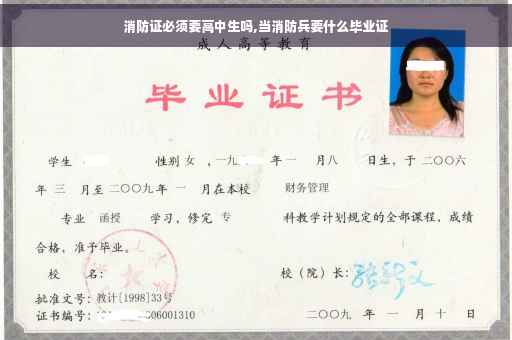 消防证必须要高中生吗,当消防兵要什么毕业证
成人高等教育
毕业证书
学生 性别 女 ,一九 年 一 月八 日生，于 二〇〇六
年 三 月至 二〇〇九年 一 月在本校 财务管理
专业 函授 学习，修完 专 科教学计划规定的全部课程，成绩
合格，准予毕业。
校 名： 校（院）长：
批准文号：教计[1998]33号
证书编号： 06001310 二〇〇九 年 一 月 十 日